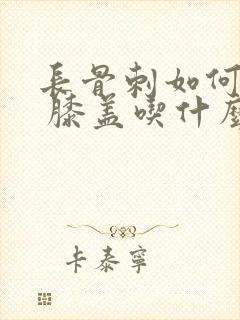 長骨刺如何
膝蓋喫什麼
卡泰寧